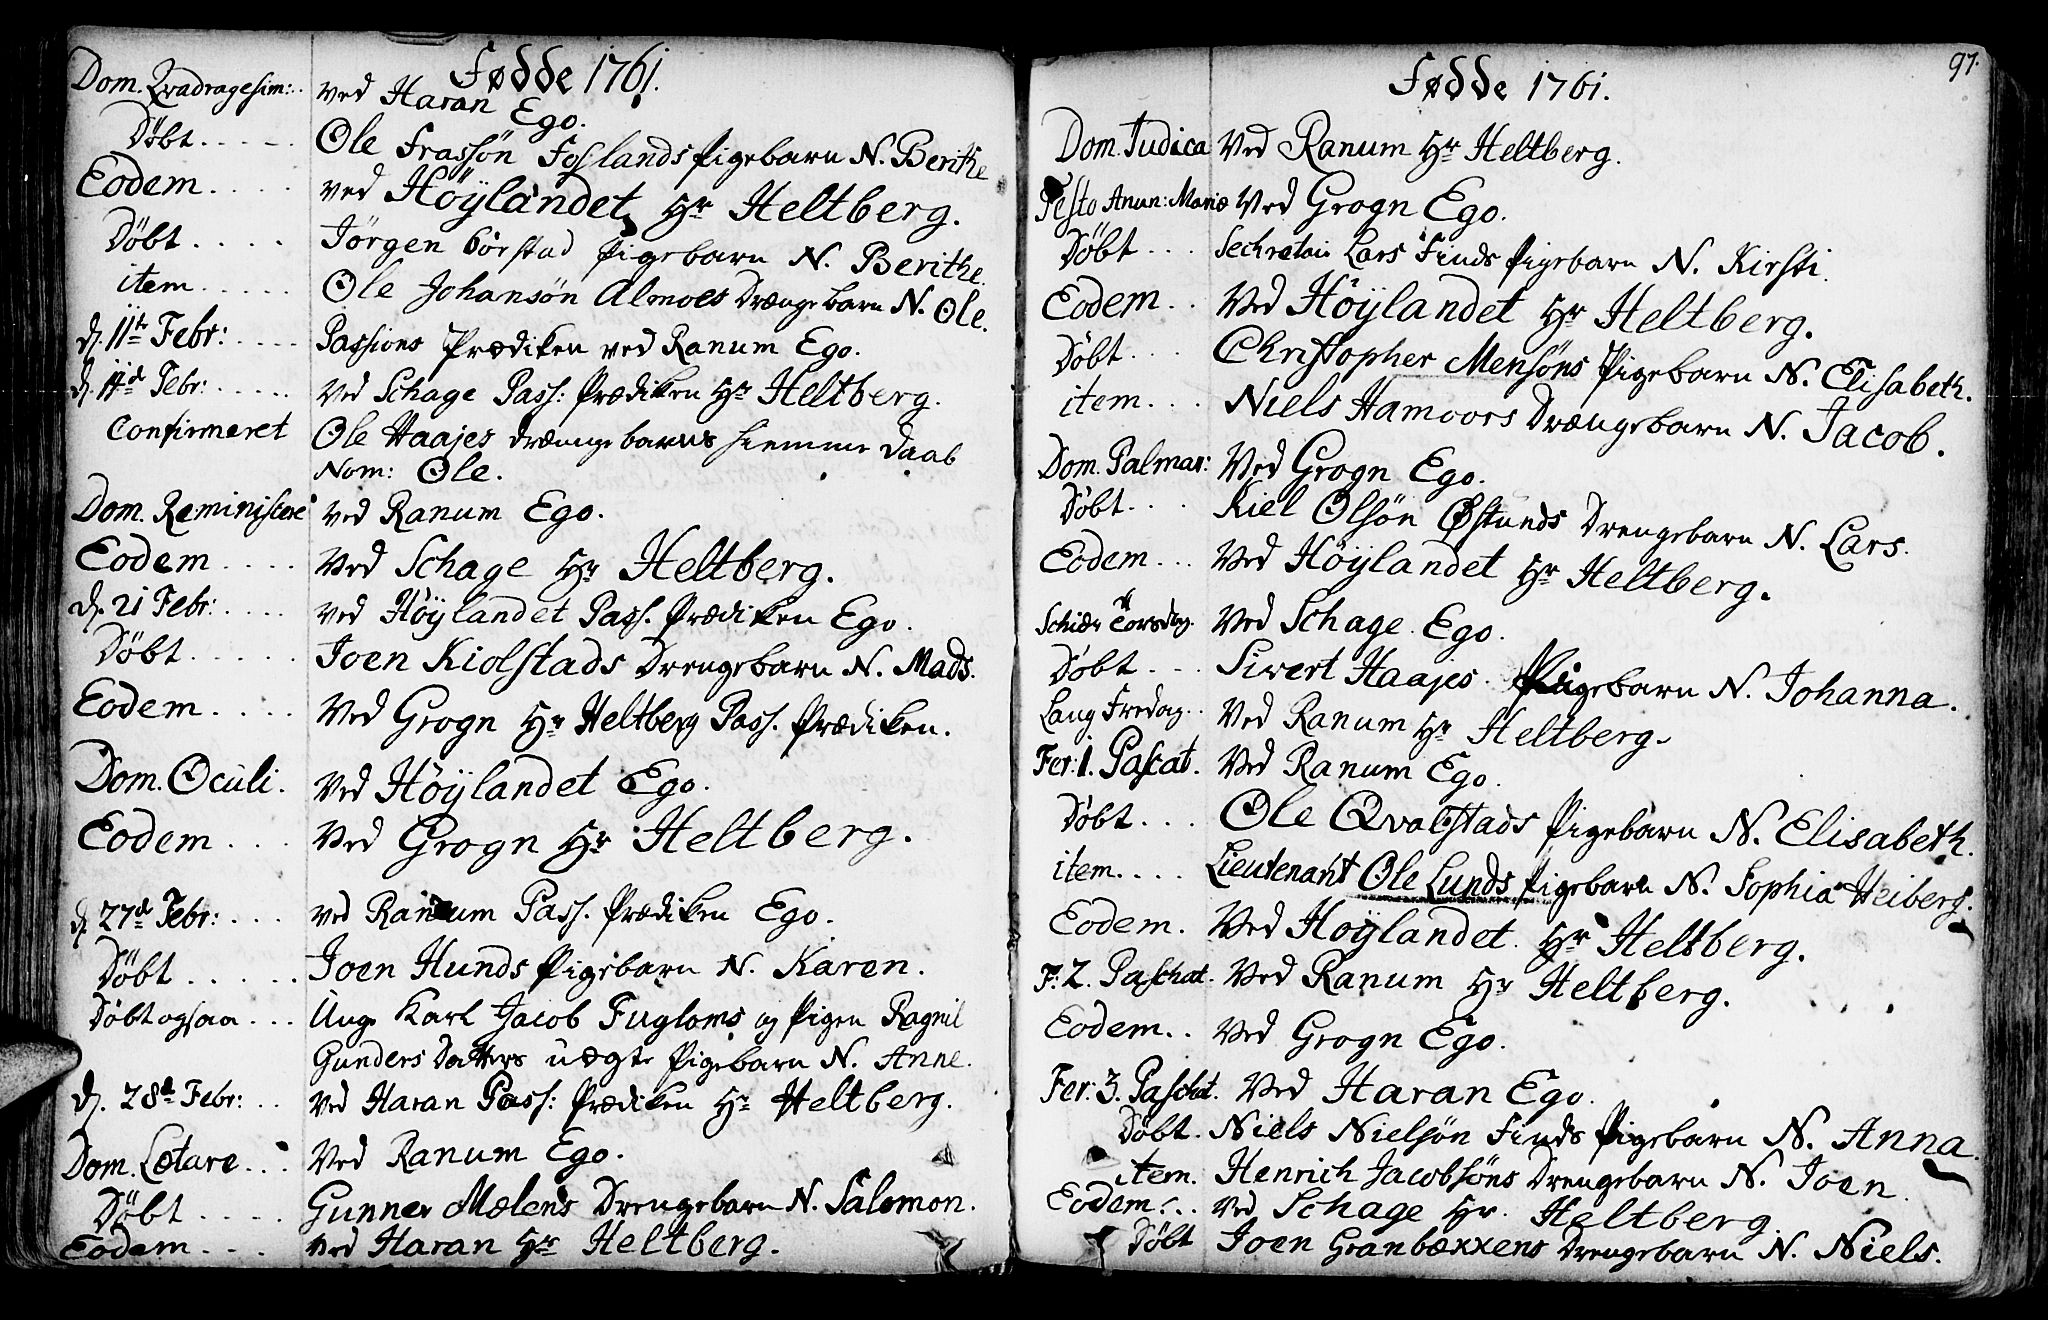 Fødde 1761.
Dom. Qvadragesim: . ved Haran Ego.
Døbt . . . . . Ole Frassøn Foslands Pigebarn N. Berithe
Eodem . . . . ved Höylandet Hr Heltberg.
Døbt . . . . Jørgen Børstad Pigebarn N. Berithe.
item . . . . . Ole Johansøn Almoes Drængebarn N. Ole.
d. 11te Febr: . . . . Passions Prædiken ved Ranum Ego.
d. 14de Febr: . . . . . ved Schage Pass: Prædiken Hr Heltberg.
Confirmeret Ole Haajes drænnge barns hiemme Daab
Nom: Ole.
Dom. Reminiscere ved Ranum Ego.
Eodem . . . . Ved Schage Hr Heltberg.
d. 21 Febr: . . . . ved Höylandet Pass. Prædiken Ego.
Døbt . . . . . Joen Kiolstads Drengebarn N. Mads.
Eodem . . . . Ved Grogn Hr Heltberg Pass. Prædiken.
Dom. Oculi. Ved Höylandet Ego.
Eodem . . . Ved Grogn Hr Heltberg.
d. 27de Febr: . . . ved Ranum Pass. Prædiken Ego.
Døbt . . . . . Joen Hunds Pigebarn N. Karen.
Døbt ogsaa . . . Ung Karl Jacob Fugloms og Pigen Ragnil
Gunders Datters uægte Pigebarn N. Anne.
d. 28de Febr: . . ved Haran Pass: Prædiken Hr Heltberg.
Dom. Lætare . . . Ved Ranum Ego.
Døbt . . . . Gunner Mælens Drengebarn N. Salomon.
Eodem . . . ved Haran Hr Heltberg.
97.
Fødde 1761.
Dom. Judica Ved Ranum Hr Heltberg.
Festo Anun: Mariæ Ved Grogn Ego.
Døbt . . . Lars Finds Pigebarn N. Kirsti.
Eodem . . Ved Höylandet Hr Heltberg.
Døbt . . . Christopher Mensøns Pigebarn N. Elisabeth.
item . . . Niels Hamoors Drængebarn N. Jacob.
Dom. Palmar: Ved Grogn Ego.
Døbt . . . Kiel Olsøn Østunds Drengebarn N. Lars.
Eodem . . . Ved Höylandet Hr Heltberg.
Schiær Torsdag. Ved Schage. Ego.
Døbt . . . Sivert Haajes Pigebarn N. Johanna.
Lang Fredag . . Ved Ranum Hr Heltberg.
Fer: 1. Pascat. Ved Ranum Ego.
Døbt . . . Ole Qvalstads Pigebarn N. Elisabeth.
item . . . . Lieutenant Ole Lunds Pigebarn N. Sophia Heiberg.
Eodem. Ved Höylandet. Hr Heltberg.
F: 2. Paschat. Ved Ranum Hr Heltberg.
Eodem . . Ved Grogn Ego.
Fer: 3. Paschat. Ved Haran Ego.
Døbt. Niels Nielsøn Finds Pigebarn N. Anna.
item. Henrich Jacobsøns Drengebarn N. Joen.
Eodem . . ved Schage Hr. Heltberg.
Døbt Joen Granbækkens Drengebarn N. Niels.